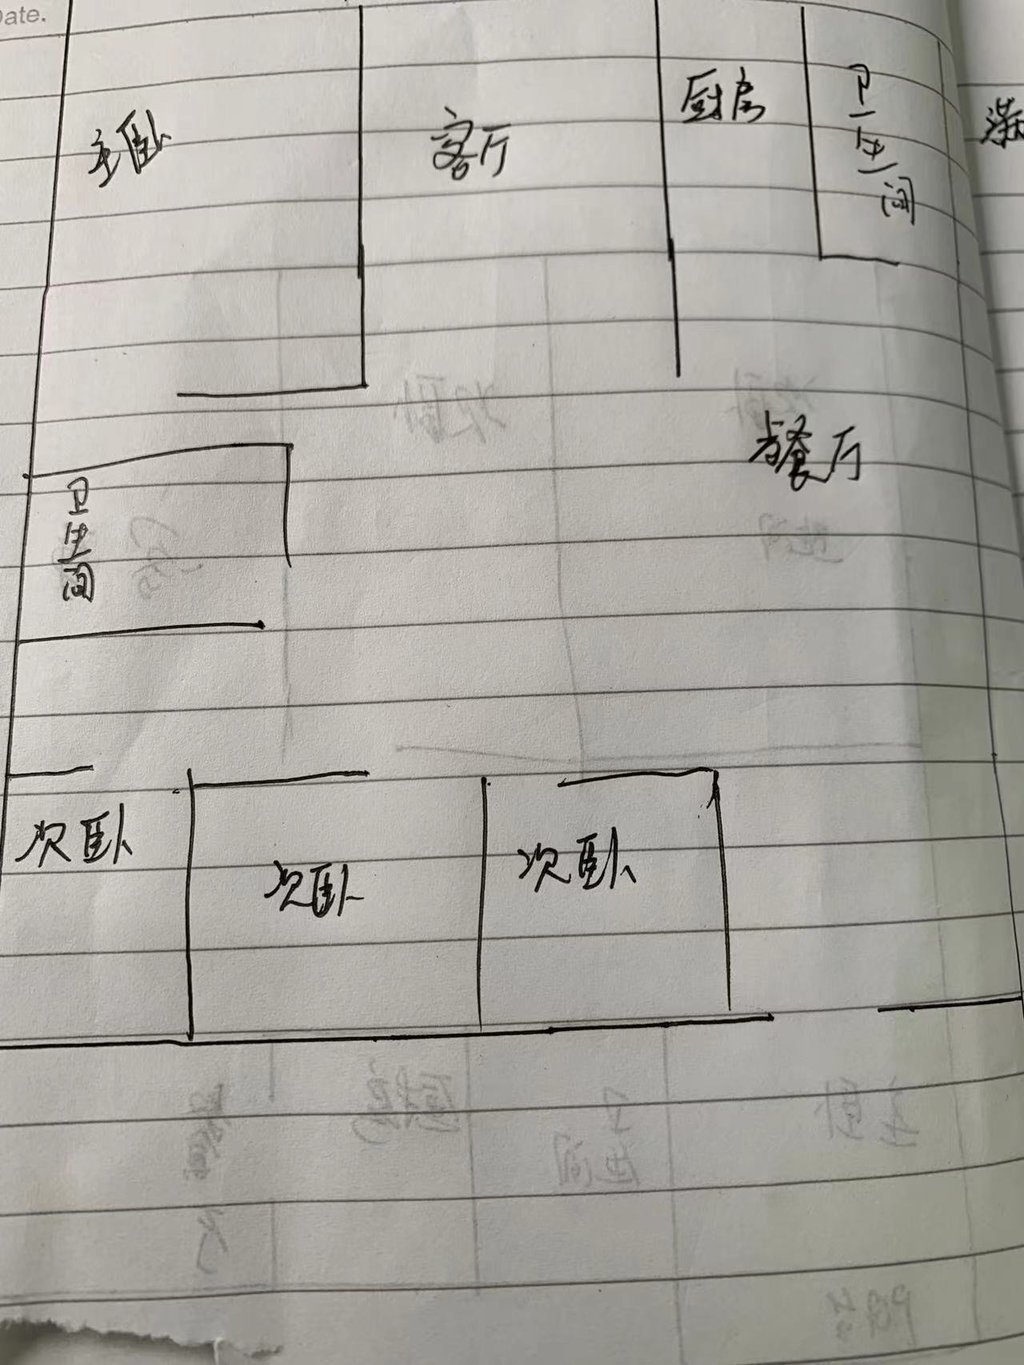 Date.
主卧
客厅
厨房
卫生间
餐厅
卫生间
次卧
次卧
次卧